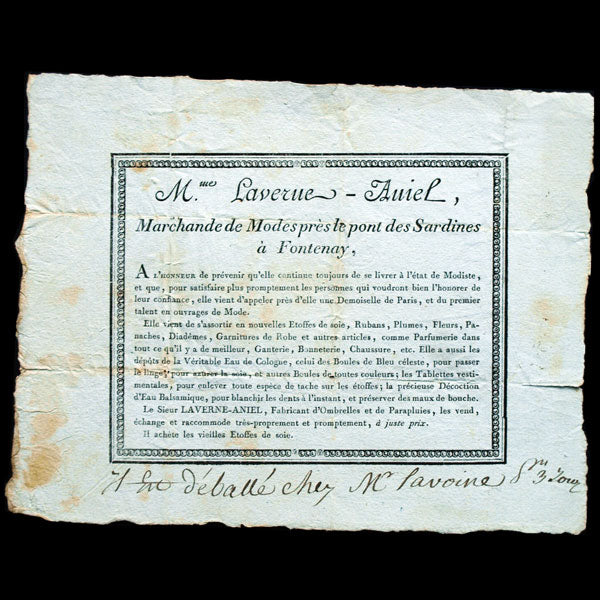 M.me Laverne-Aniel,
Marchande de Modes près le pont des Sardines
à Fontenay,
A L'HONNEUR de prévenir qu'elle continue toujours de se livrer à l'état de Modiste,
et que, pour satisfaire plus promptement les personnes qui voudront bien l'honorer de
leur confiance, elle vient d'appeler près d'elle une Demoiselle de Paris, et du premier
talent en ouvrages de Mode.
Elle vient de s'assortir en nouvelles Etoffes de soie, Rubans, Plumes, Fleurs, Pa-
naches, Diadêmes, Garnitures de Robe et autres articles, comme Parfumerie dans
tout ce qu'il y a de meilleur, Ganterie, Bonneterie, Chaussure, etc. Elle a aussi les
dépôts de la Véritable Eau de Cologne, celui des Boules de Bleu céleste, pour passer
le linge, pour azurer la soie, et autres Boules de toutes couleurs; les Tablettes vesti-
mentales, pour enlever toute espèce de tache sur les étoffes; la précieuse Décoction
d'Eau Balsamique, pour blanchir les dents à l'instant, et préserver des maux de bouche.
Le Sieur LAVERNE-ANIEL, Fabricant d'Ombrelles et de Parapluies, les vend,
échange et raccommode très-proprement et promptement, à juste prix.
Il achète les vieilles Etoffes de soie.
Il Est déballé chez Mr Lavoine 3